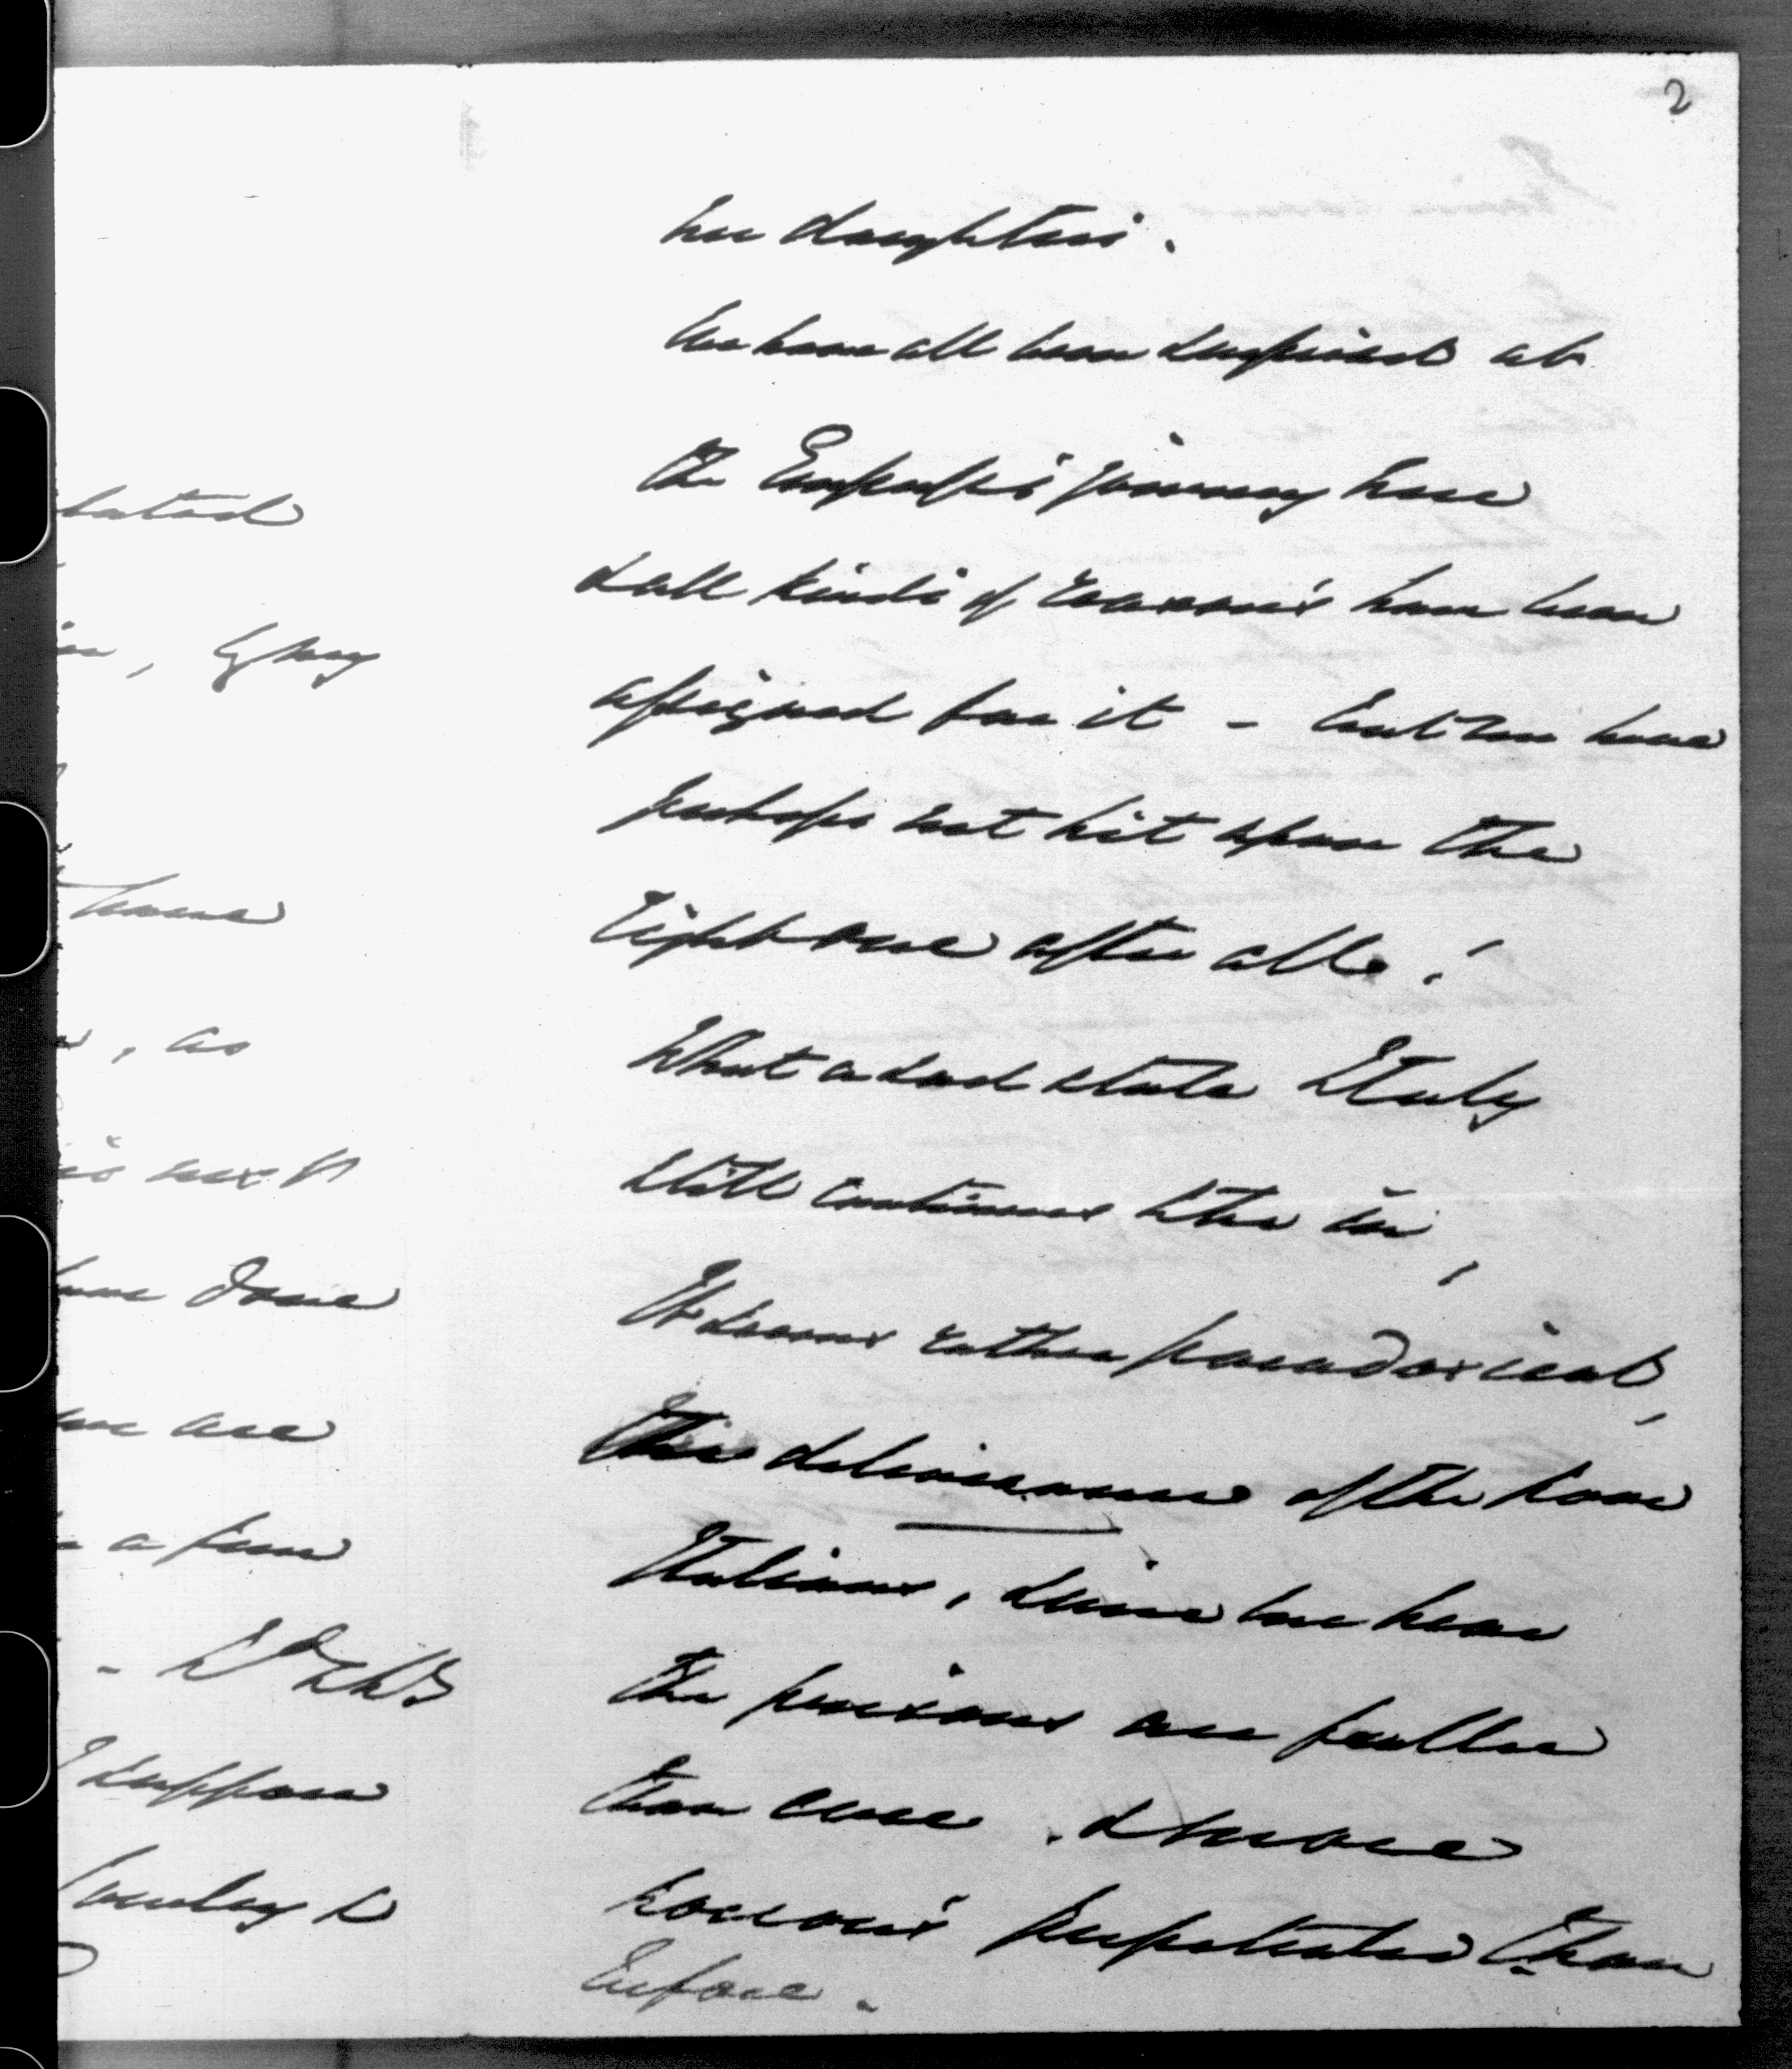 2
her daughters.
We have all been surprised at
the Empress's journey here
& all kinds of reasons have been
assigned for it - but we have
perhaps not hit upon the
right one after all!
What a sad state Italy
still continues to be in,
It seems rather paradoxical,
this deliverance of the poor
Italians, since we hear
the prisons are fuller
than ever, & more
horrors perpetrated than
before.
tated
, Gyng
have
, as
is next
have done
we are
a few
-
I suppose